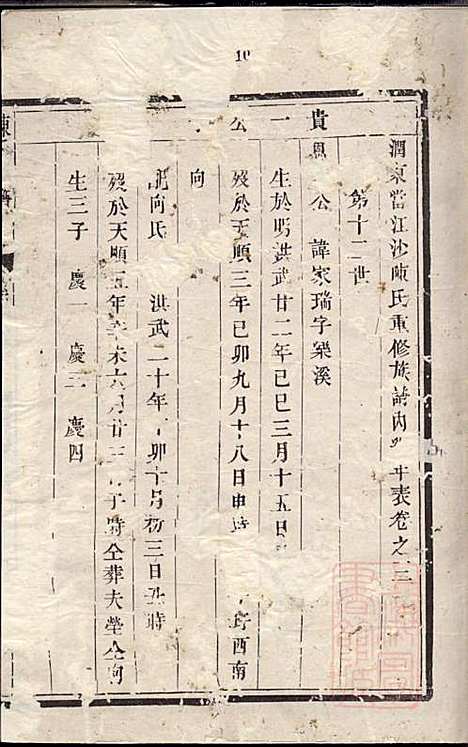 19
潤東當江沙陳氏重修族譜內 年表卷之三
第十二世
貴一公
恩公 諱家瑞字樂溪
生於明洪武廿二年己巳三月十五日
歿於天順三年己卯九月十八日申時 酉南
向
配向氏 洪武二十年丁卯十月初三日丑時
歿於天順五年辛未六月廿三 子時仝葬夫塋仝向
生三子 慶一 慶二 慶四
陳